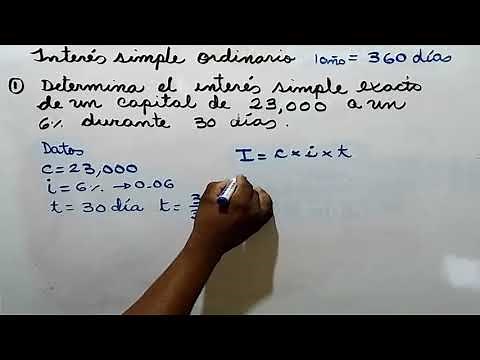 Interés simple ordinario 1 año = 360 días
① Determina el interés simple exacto
de un capital de 23,000 a un
6% durante 30 días.
Datos
C = 23,000
i = 6% → 0.06
t = 30 día t = 3
I = c × i × t